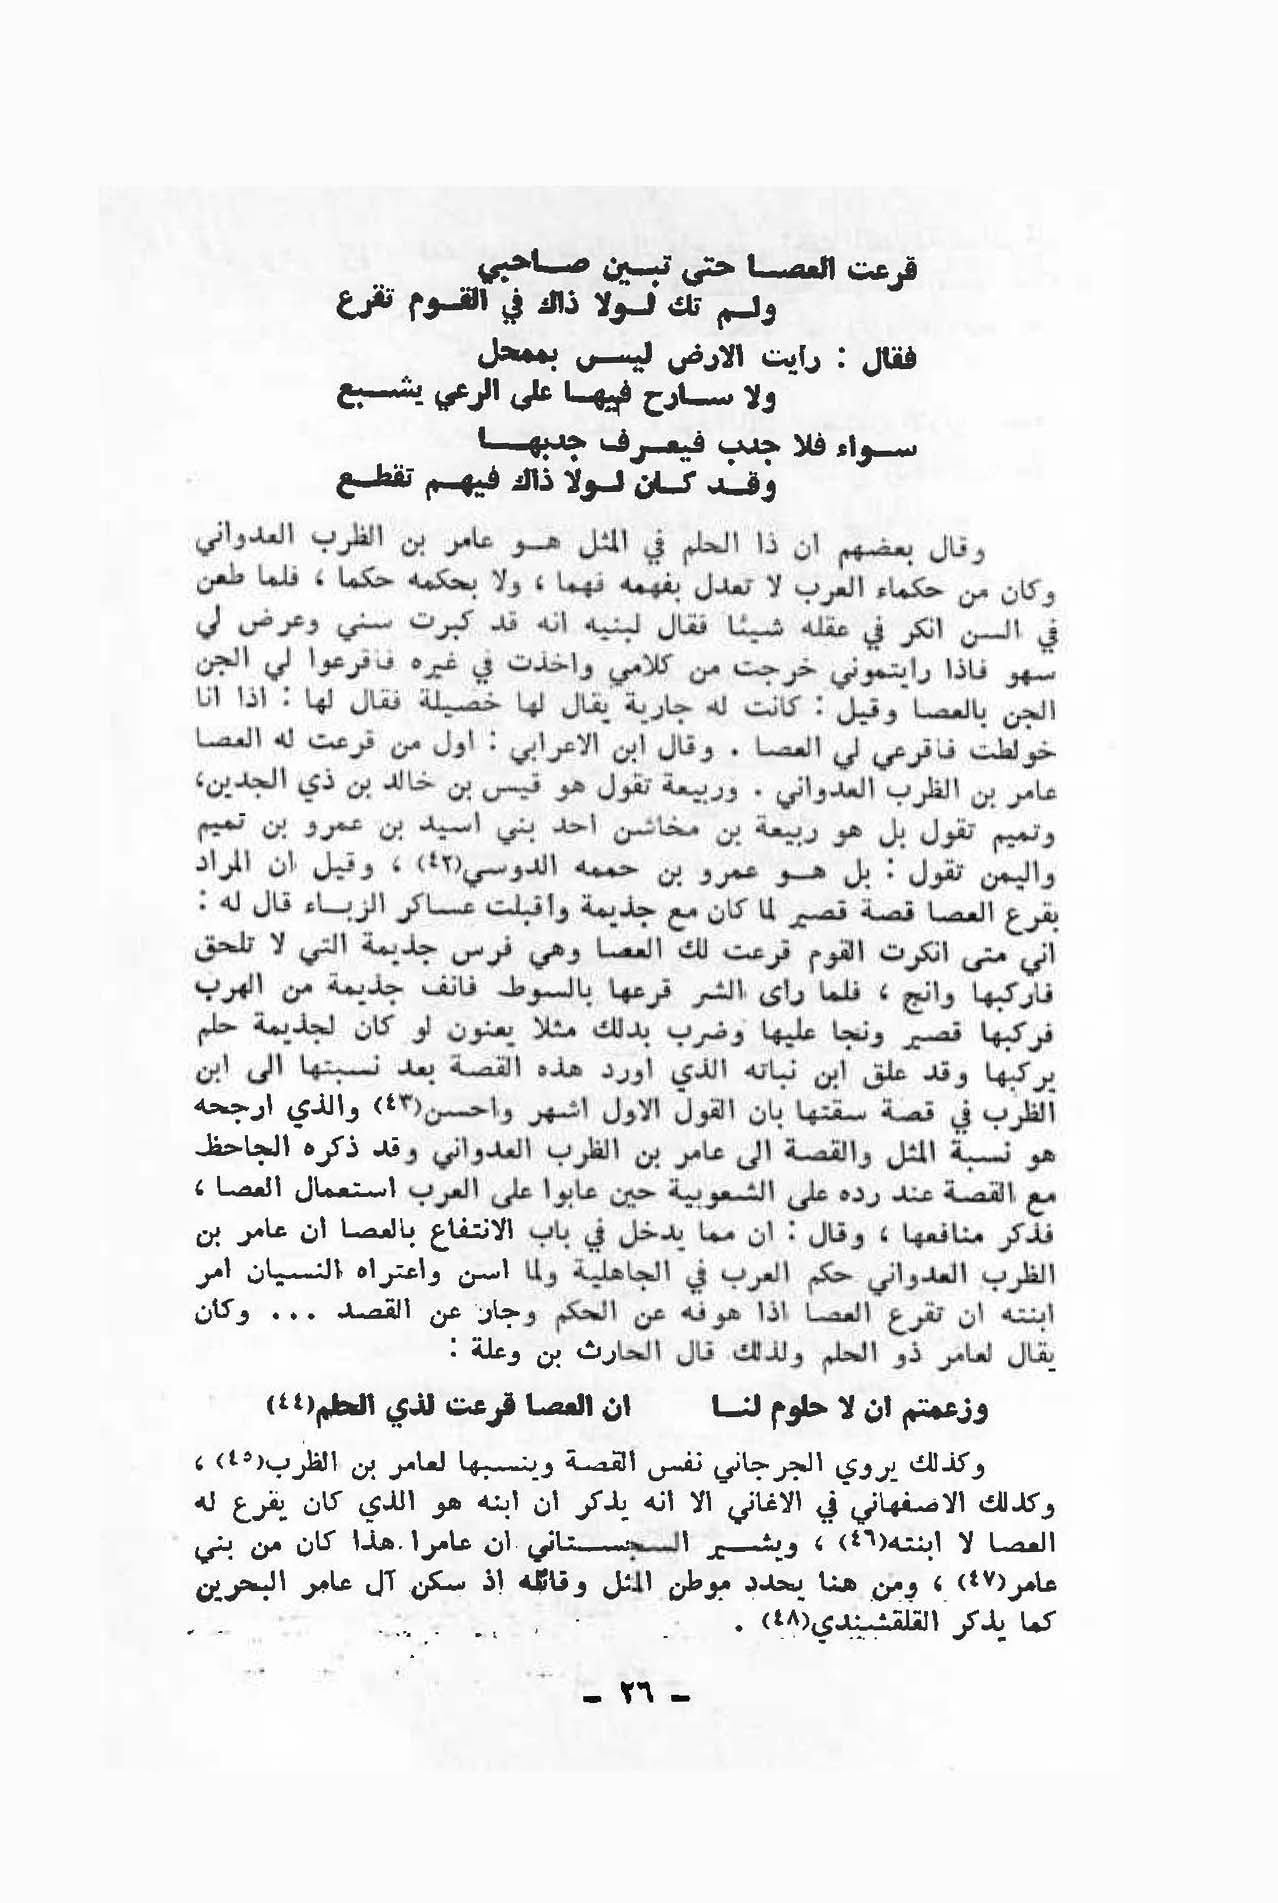 قرعت العصـا حتى تبـين صـاحبي
ولـم تك لـولا ذاك في القـوم تقرع
فقال : رايت الارض ليـس بممحل
ولا سـارح فيهـا على الرعي يشـبع
سـواء فلا جدب فيعـرف جدبهـا
وقـد كـان لـولا ذاك فيهـم تقطـع
وقال بعضهم ان ذا الحلم في المثل هـو عامر بن الظرب العدواني
وكان من حكماء العرب لا تعدل بفهمه فهما ، ولا بحكمه حكما ، فلما طعن
في السن انكر في عقله شيئا فقال لبنيه انه قد كبرت سني وعرض لي
سهو فاذا رايتموني خرجت من كلامي واخذت في غيره فاقرعوا لي الجن
الجن بالعصا وقيل : كانت له جارية يقال لها خصيلة فقال لها : اذا انا
خولطت فاقرعي لي العصا . وقال ابن الاعرابي : اول من قرعت له العصا
عامر بن الظرب العدواني . وربيعة تقول هو قيس بن خالد بن ذي الجدين،
وتميم تقول بل هو ربيعة بن مخاشن احد بني اسيد بن عمرو بن تميم
واليمن تقول : بل هـو عمرو بن حممه الدوسي(٤٢) ، وقيل ان المراد
بقرع العصا قصة قصير لما كان مع جذيمة واقبلت عساكر الزبـاء قال له :
اني متى انكرت القوم قرعت لك العصا وهي فرس جذيمة التي لا تلحق
فاركبها وانج ، فلما راى الشر قرعها بالسوط فانف جذيمة من الهرب
فركبها قصير ونجا عليها وضرب بذلك مثلا يعنون لو كان لجذيمة حلم
يركبها وقد علق ابن نباته الذي اورد هذه القصة بعد نسبتها الى ابن
الظرب في قصة سقتها بان القول الاول اشهر واحسن(٤٣) والذي ارجحه
هو نسبة المثل والقصة الى عامر بن الظرب العدواني وقد ذكره الجاحظ
مع القصة عند رده على الشعوبية حين عابوا على العرب استعمال العصا ،
فذكر منافعها ، وقال : ان مما يدخل في باب الانتفاع بالعصا ان عامر بن
الظرب العدواني حكم العرب في الجاهلية ولما اسن واعتراه النسيان امر
ابنته ان تقرع العصا اذا هوفه عن الحكم وجار عن القصد ... وكان
يقال لعامر ذو الحلم ولذلك قال الحارث بن وعلة :
وزعمتم ان لا حلوم لنـا ان العصا قرعت لذي الحلم(٤٤)
وكذلك يروي الجرجاني نفس القصة وينسبها لعامر بن الظرب(٤٥) ،
وكذلك الاصفهاني في الاغاني الا انه يذكر ان ابنه هو الذي كان يقرع له
العصا لا ابنته(٤٦) ، ويشـير السجسـتاني ان عامرا هذا كان من بني
عامر(٤٧) ، ومن هنا يحدد موطن المثل وقائله اذ سكن آل عامر البحرين
كما يذكر القلقشندي(٤٨) .
- ٢٦ -